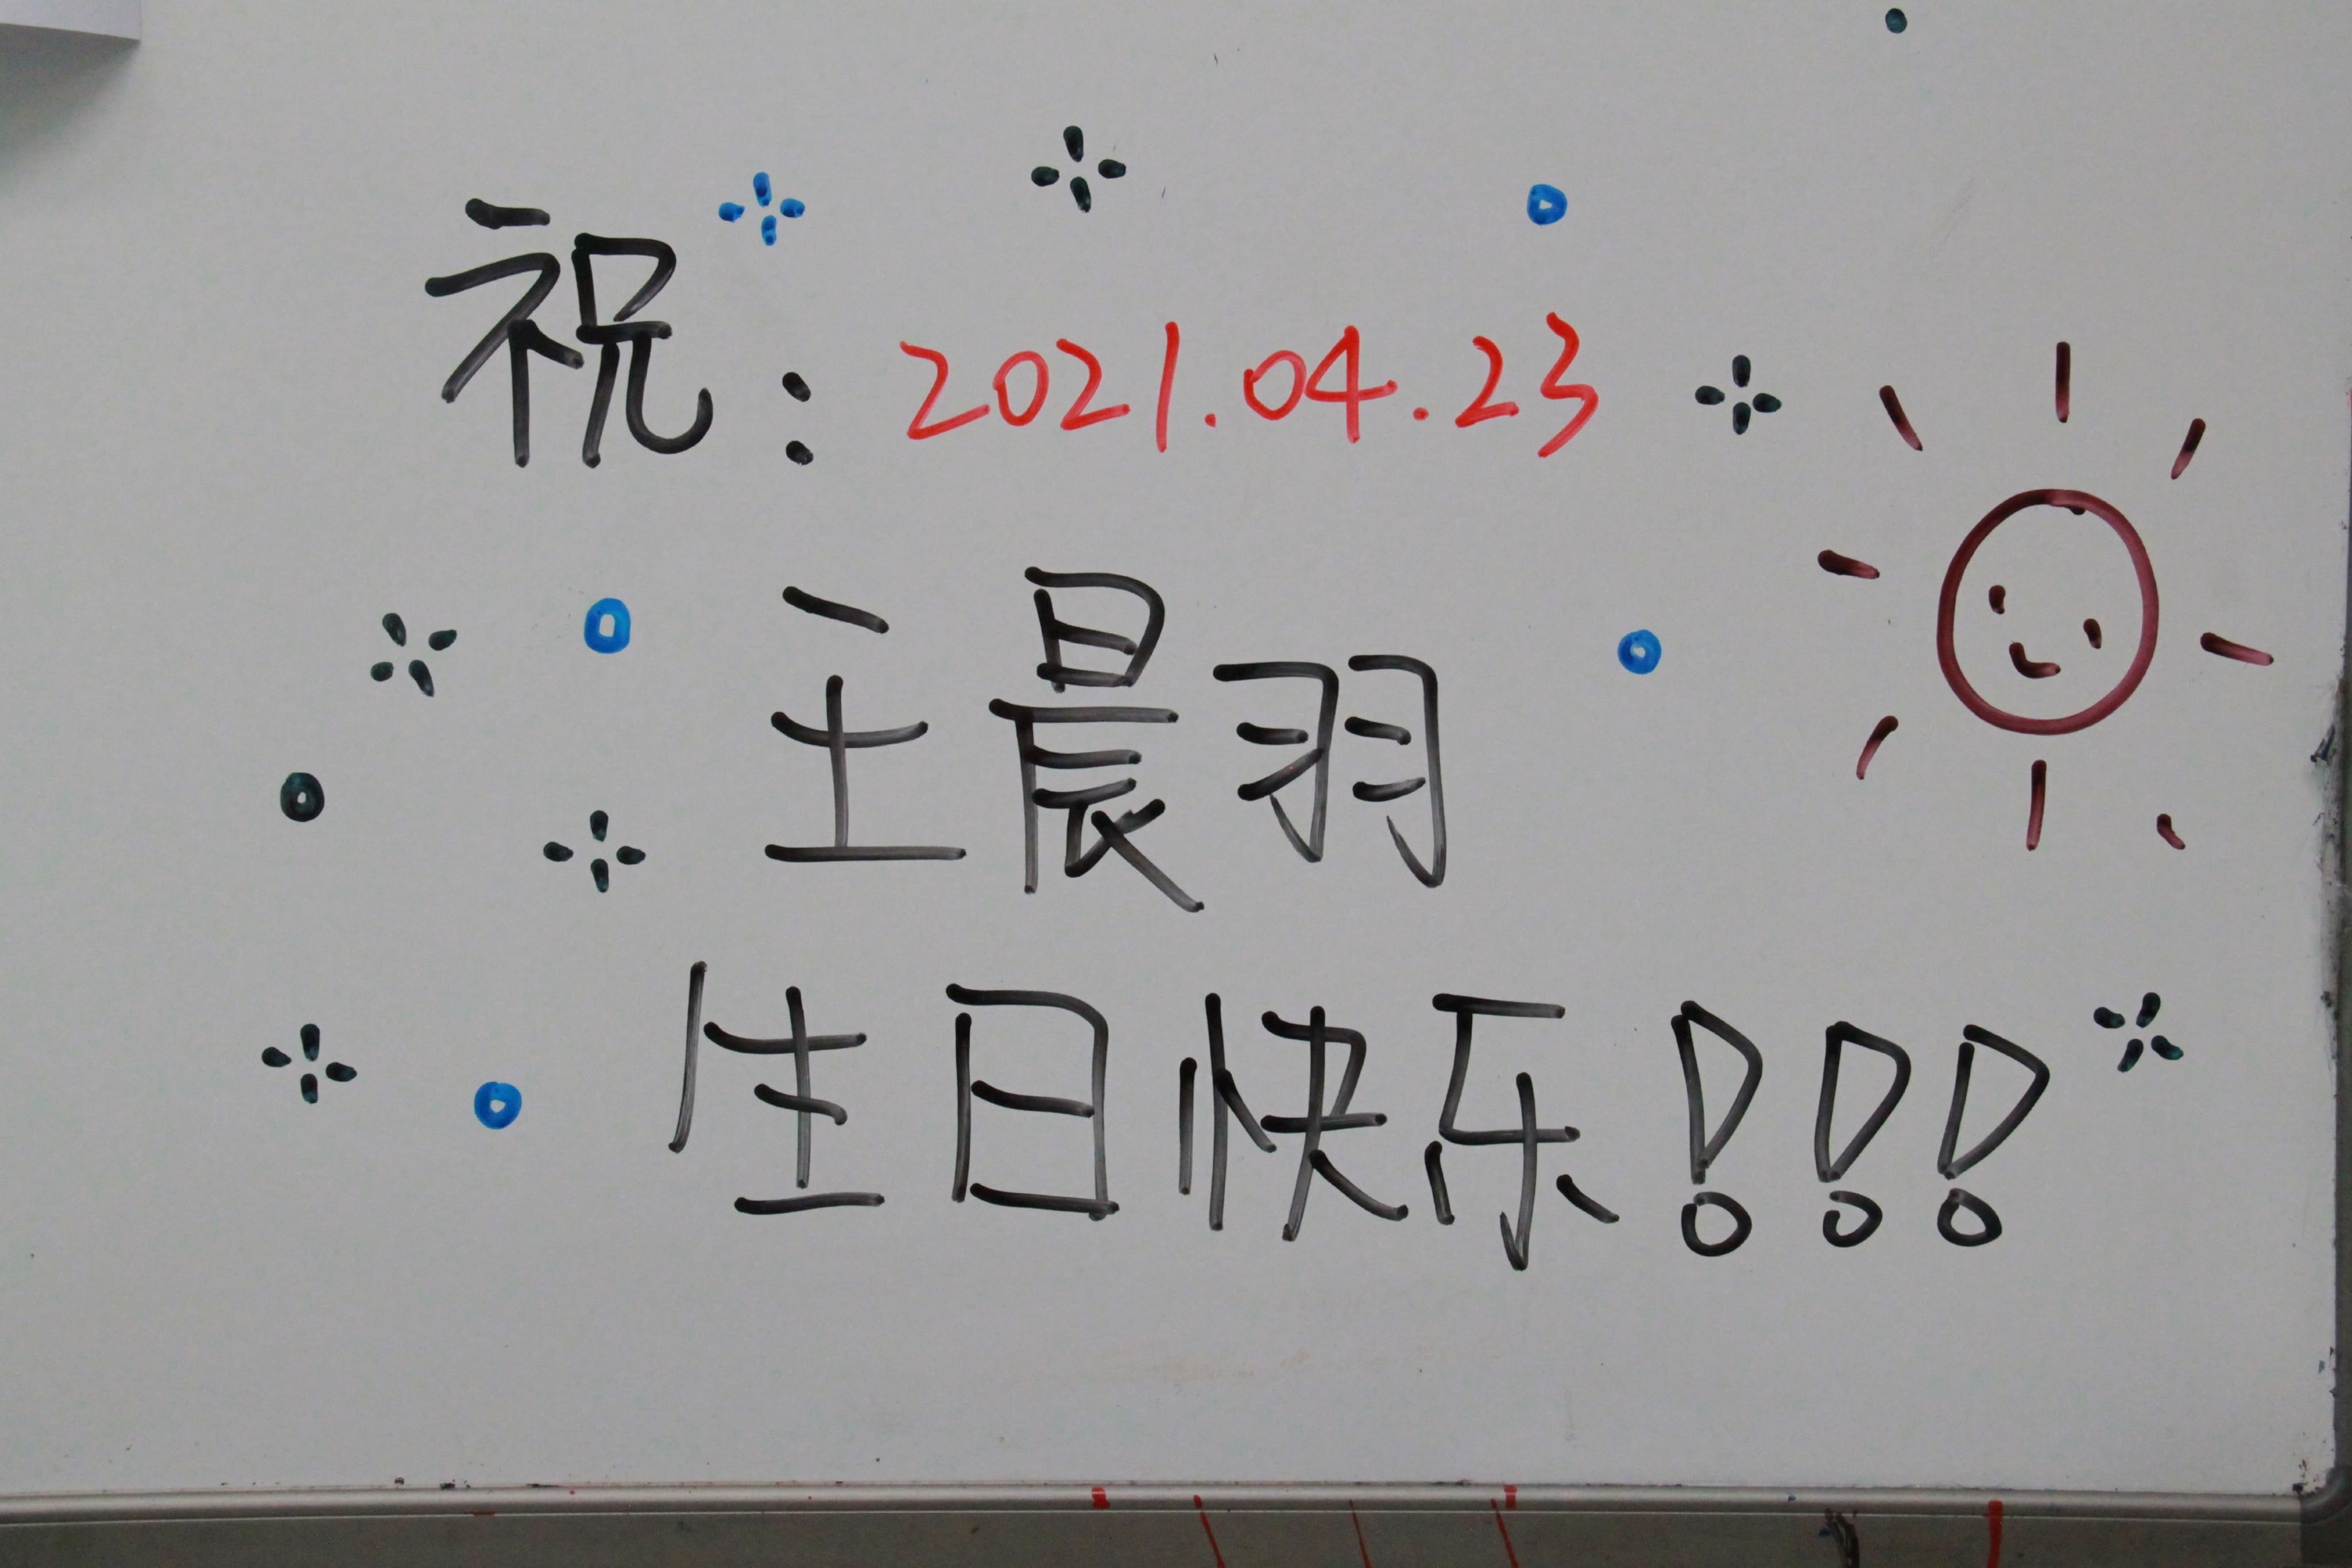 祝：2021.04.23
王晨羽
生日快乐！！！